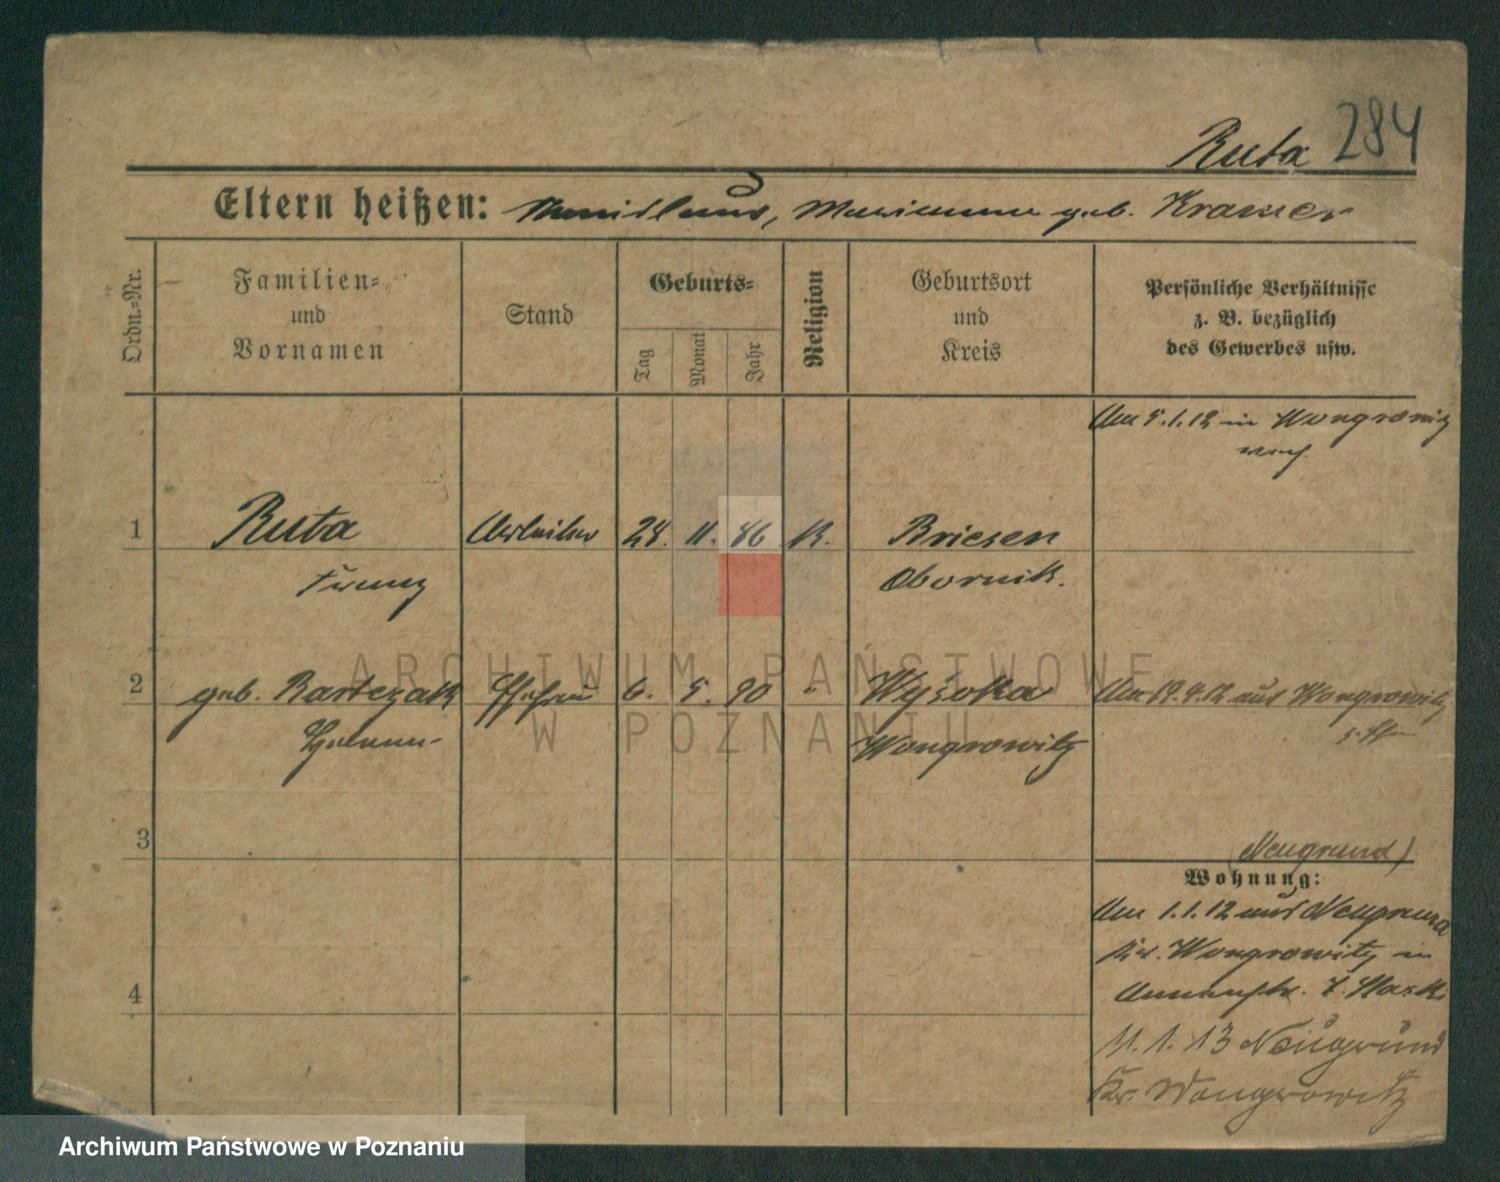 284
Ruta
Eltern heißen: Stanislaus, Marianna geb. Kramer
Ordn.=Nr.
Familien=
und
Vornamen
Stand
Geburts=
Tag
Monat
Jahr
Religion
Geburtsort
und
Kreis
Persönliche Verhältnisse
z. B. bezüglich
des Gewerbes usw.
Am 5.1.12 in Wongrowitz
1 Ruta Arbeiter 24. 11. 86 K. Briesen
Franz Obornik.
2 geb. Bartczak Ehefrau 6. 5. 90 " Wysoka Am 19.4.12 aus Wongrowitz
Wongrowitz
3
(Neugrund)
Wohnung:
Am 1.1.12 aus Neugrund
Kr. Wongrowitz in
4
11.1.13 Neugrund
Kr. Wongrowitz
ARCHIWUM PAŃSTWOWE
W POZNANIU
Archiwum Państwowe w Poznaniu